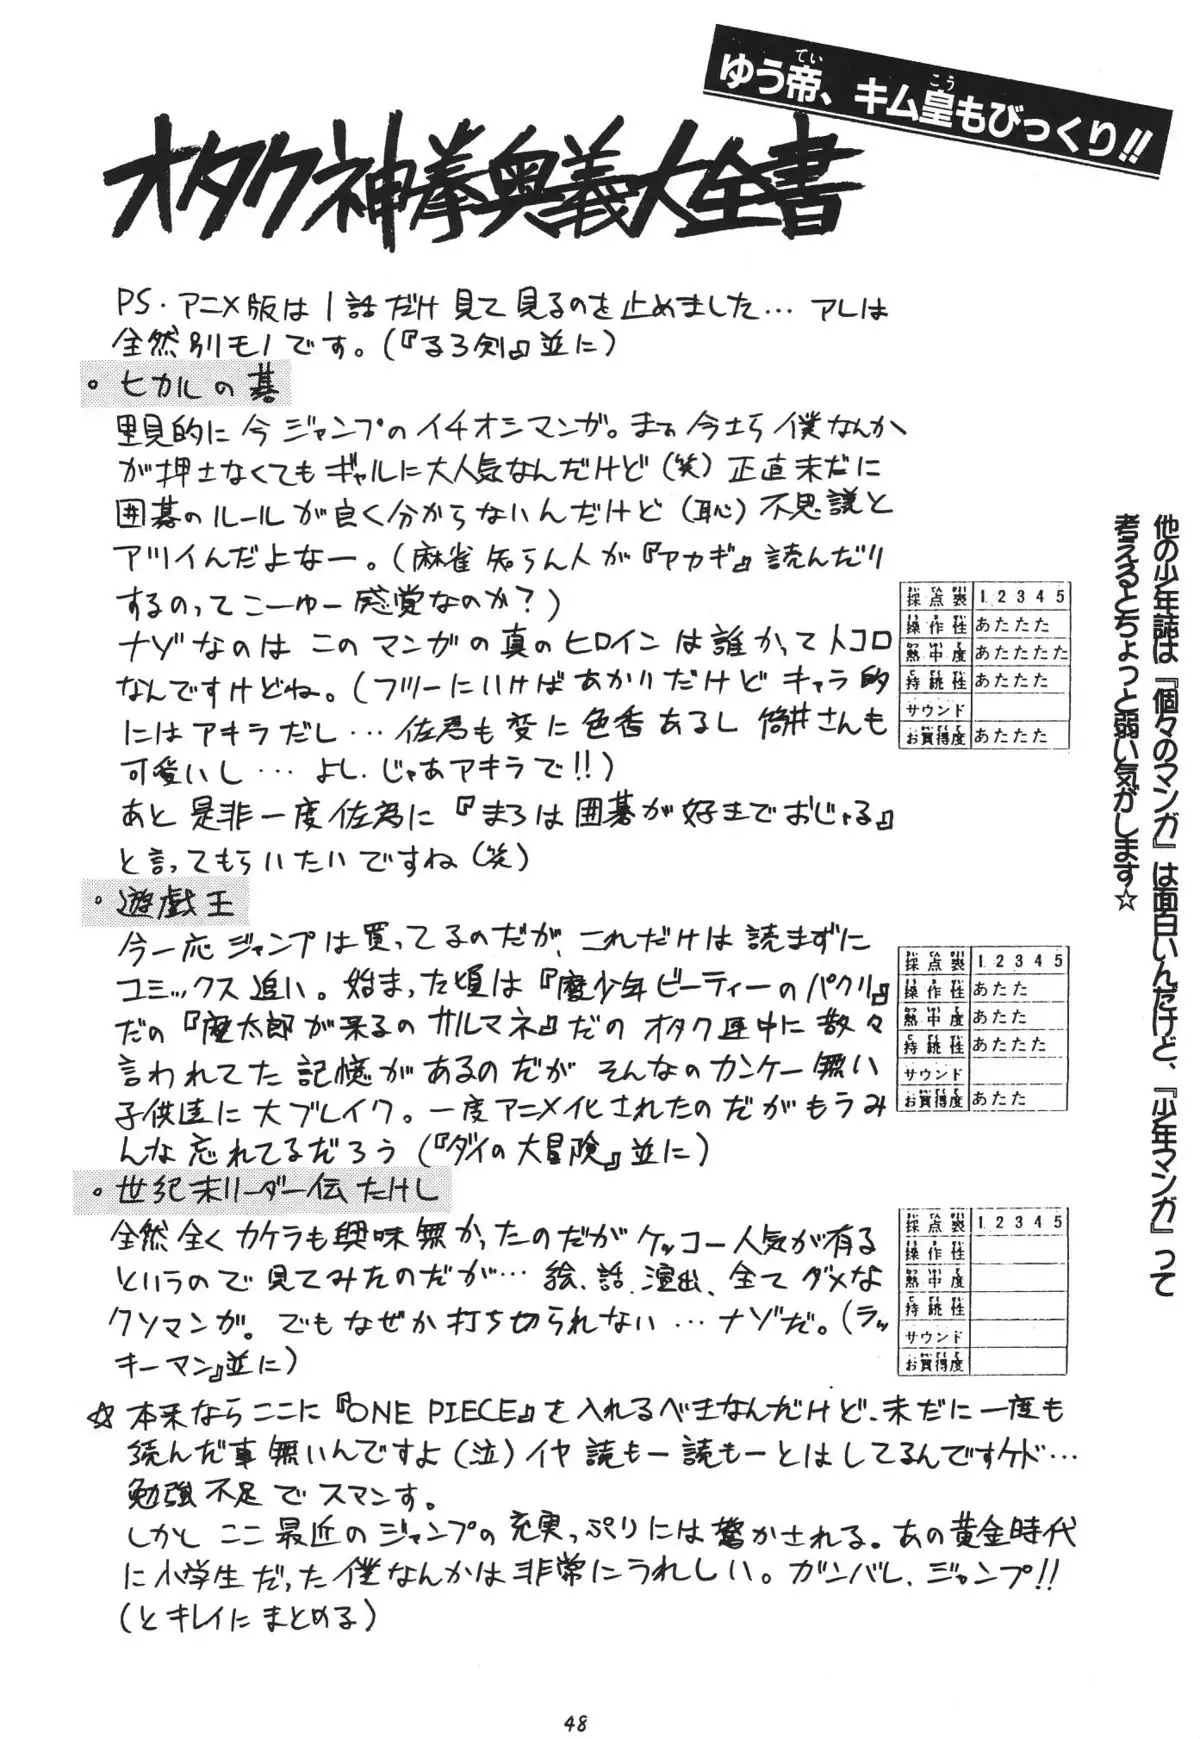 ゆう帝、キム皇もびっくり!!
オタク神拳奥義大全書
PS・アニメ版は1話だけ見て見るのを止めました…アレは
全然別モノです。(『るろ剣』並に)
。ヒカルの碁
里見的に今ジャンプのイチオシマンガ。まぁ今さら僕なんか
が押さなくてもギャルに大人気なんだけど(笑)正直未だに
囲碁のルールが良く分からないんだけど(恥)不思議と
アツイんだよなー。(麻雀知らん人が『アカギ』読んだり
するのってこーゆー感覚なのか?)
ナゾなのはこのマンガの真のヒロインは誰かってトコロ
なんですけどね。(フツーにいけばあかりだけどキャラ的
にはアキラだし…佐為も変に色香あるし筒井さんも
可愛いし…よし、じゃあアキラで!!)
あと是非一度佐為に『まろは囲碁が好きでおじゃる』
と言ってもらいたいですね(笑)
採点表 1 2 3 4 5
操作性 あたたた
熱中度 あたたたた
持続性 あたたた
サウンド
お買得度 あたたた
。遊戯王
今一応ジャンプは買ってるのだが、これだけは読まずに
コミックス追い。始まった頃は『魔少年ビーティーのパクリ』
だの『魔太郎が来るのサルマネ』だのオタク連中に散々
言われてた記憶があるのだがそんなのカンケー無い
子供達に大ブレイク。一度アニメ化されたのだがもうみ
んな忘れてるだろう(『ダイの大冒険』並に)
採点表 1 2 3 4 5
操作性 あたた
熱中度 あたた
持続性 あたたた
サウンド
お買得度 あたた
。世紀末リーダー伝たけし
全然全くカケラも興味無かったのだがケッコー人気が有る
というので見てみたのだが…絵、話、演出、全てダメな
クソマンガ。でもなぜか打ち切られない…ナゾだ。(ラッ
キーマン』並に)
採点表 1 2 3 4 5
操作性
熱中度
持続性
サウンド
お買得度
☆本来ならここに『ONE PIECE』を入れるべきなんだけど、未だに一度も
読んだ事無いんですよ(泣)イヤ読もー読もーとはしてるんですケド…
勉強不足でスマンす。
しかしここ最近のジャンプの充実っぷりには驚かされる。あの黄金時代
に小学生だった僕なんかは非常にうれしい。ガンバレ、ジャンプ!!
(とキレイにまとめる)
他の少年誌は『個々のマンガ』は面白いんだけど、『少年マンガ』って
考えるとちょっと弱い気がします☆
48